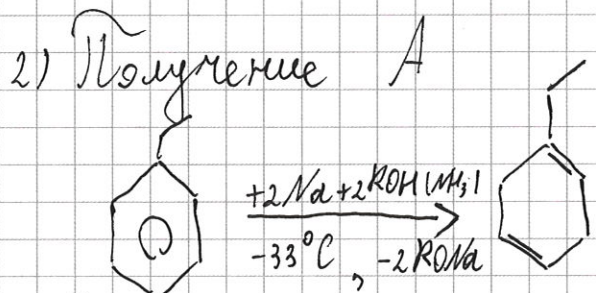 2) Получение A
+2Na+2ROH(NH₃)
-33°C, -2RONa